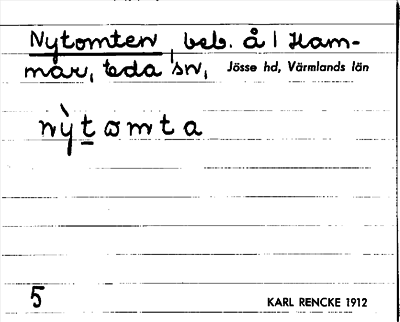 Nytomten, beb. å 1 Ham-
mar, Eda sn, Jösse hd, Värmlands län
ny̍̀t̲omta
5 KARL RENCKE 1912